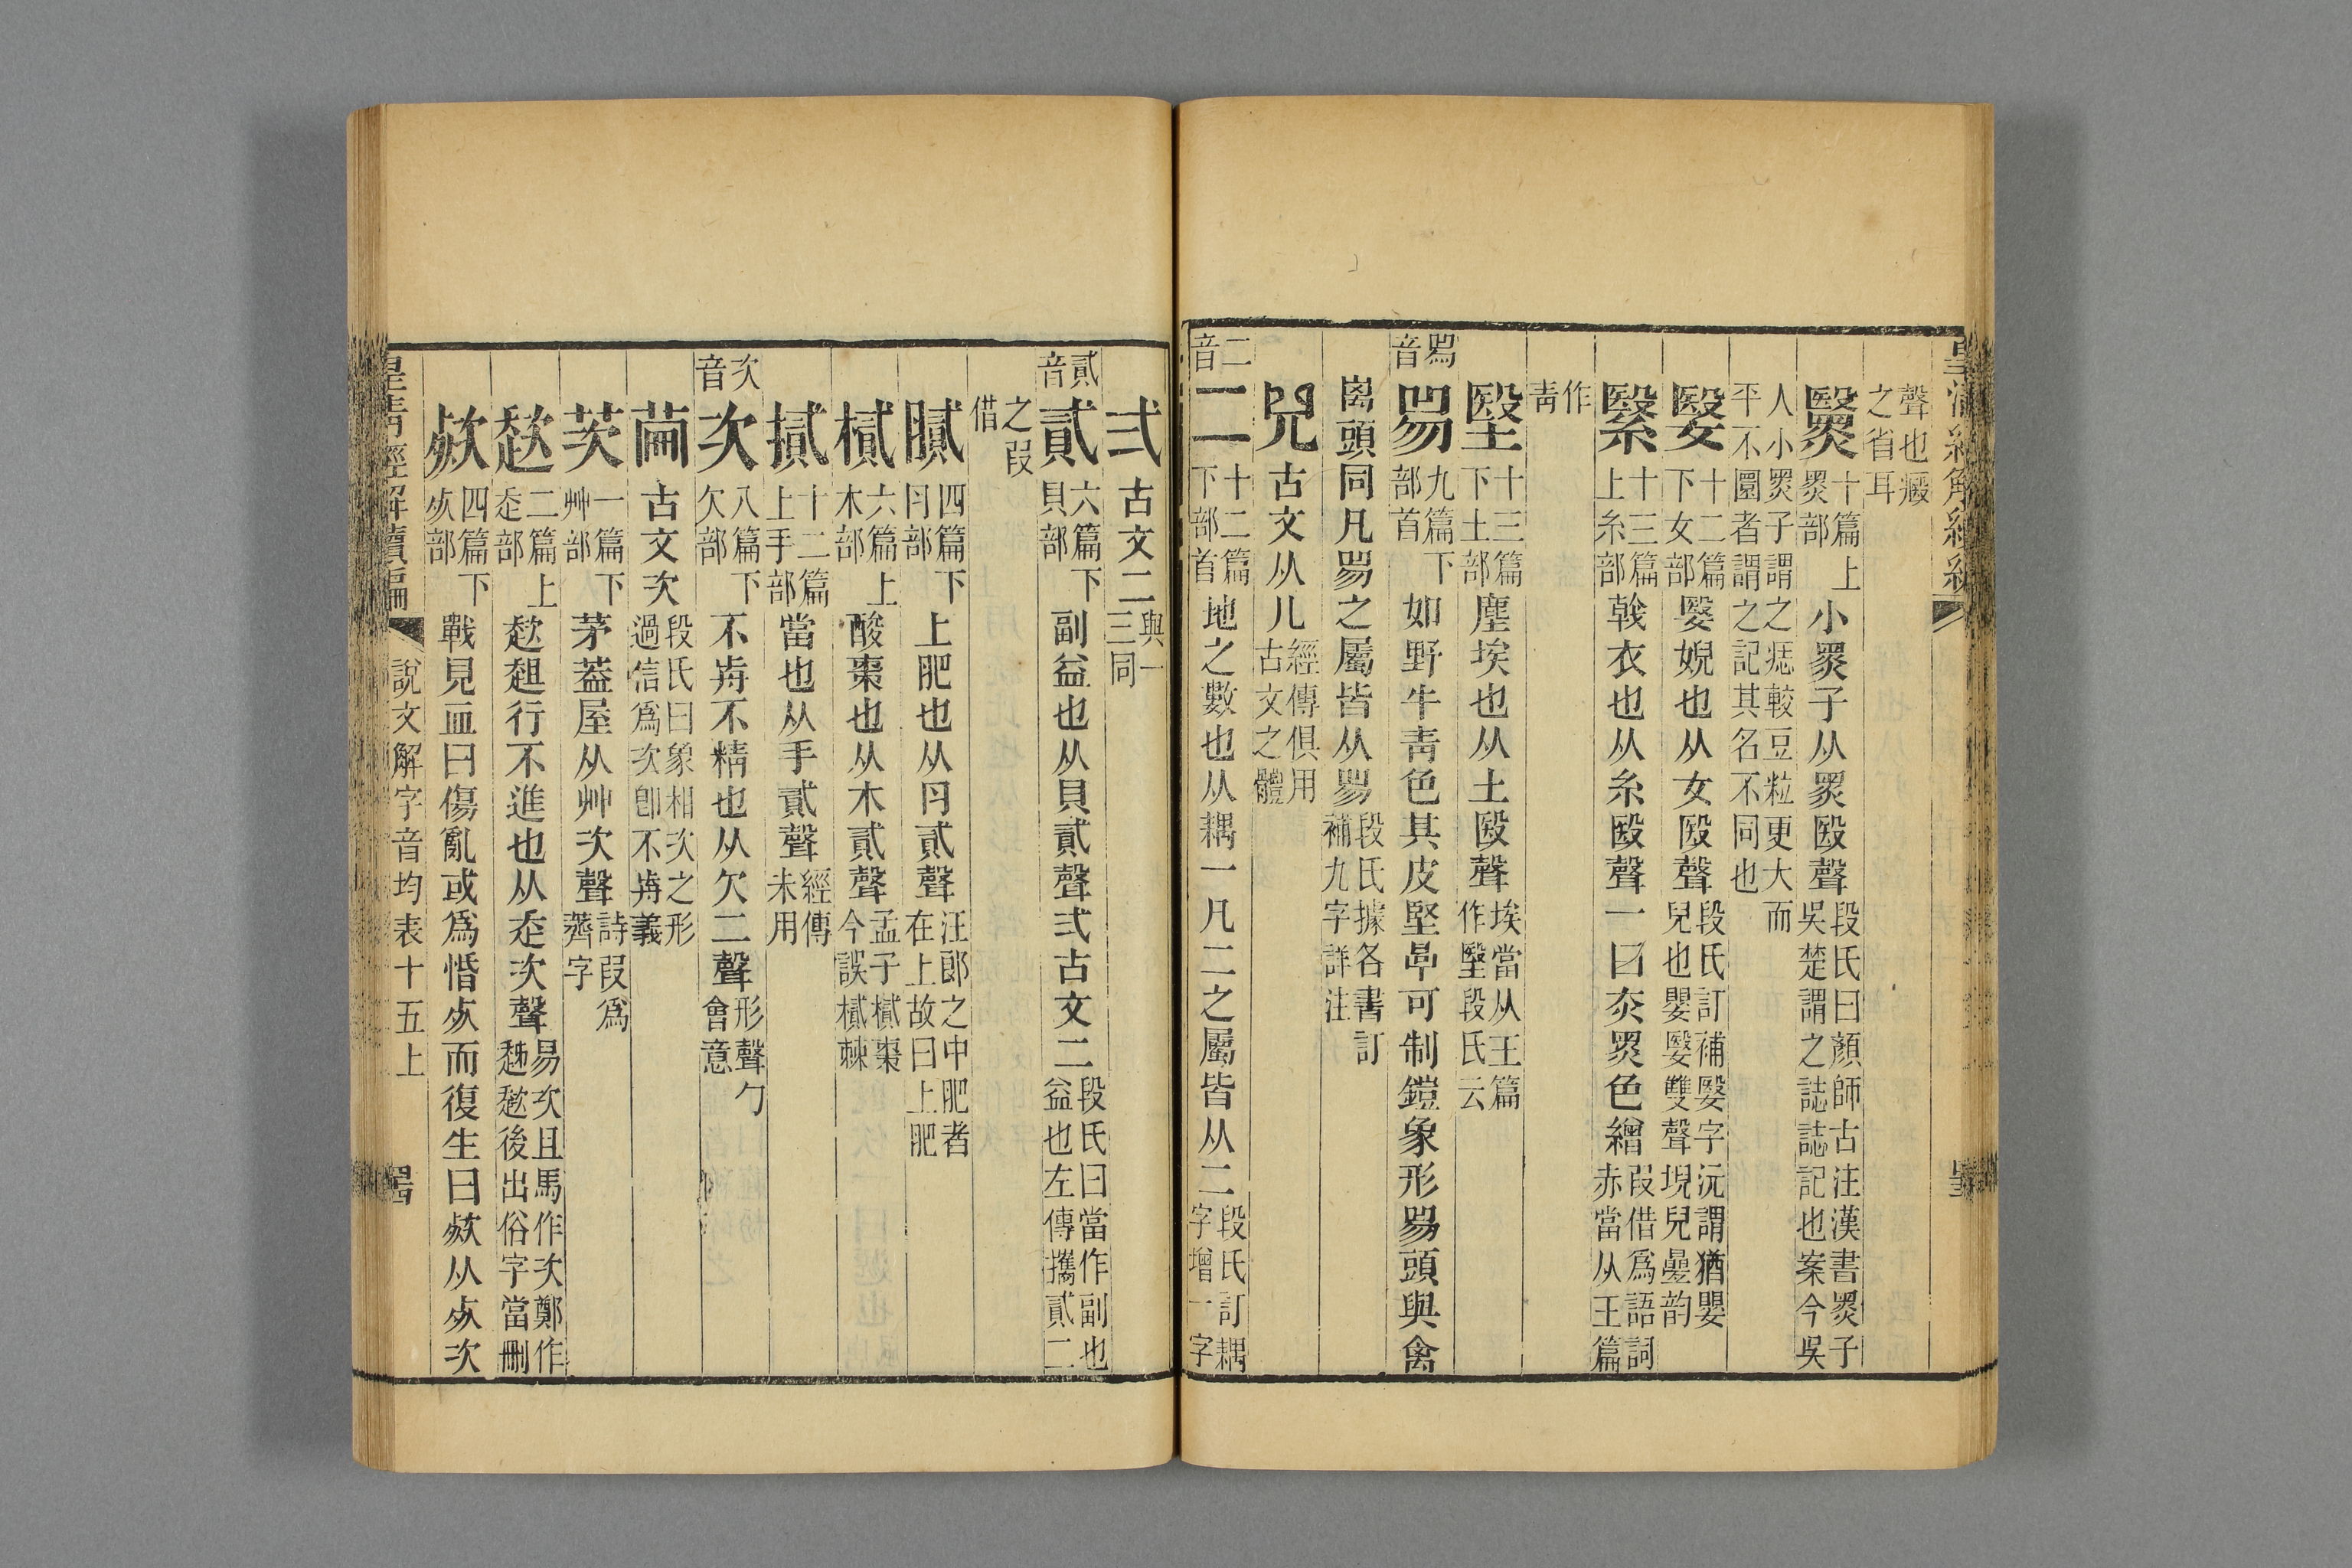 聲也癜
之省耳
黳 十篇上黑部 小黑子从黑殹聲 段氏曰顏師古注漢書黑子吳楚謂之誌誌記也案今吳
人小黑子謂之痣較豆粒更大而平不圓者謂之記其名不同也
嫛 十二篇下女部 嫛婗也从女殹聲 段氏訂補嫛字沅謂猶嬰兒也嬰嫛雙聲堄兒曡韵
繄 十三篇上糸部 戟衣也从糸殹聲一曰赤黑色繒 叚借爲語詞赤當从王篇
作青
堅 十三篇下土部 塵埃也从土殹聲 埃當从王篇作堅段氏云
舄音 𤉡 九篇下部首 如野牛青色其皮堅厚可制鎧象形𤉡頭與禽
离頭同凡𤉡之屬皆从𤉡 段氏據各書訂補九字詳注
兕 古文从儿 經傳俱用古文之體
二音 二 十二篇下部首 地之數也从耦一凡二之屬皆从二 段氏訂耦字增一字
弍 古文二 與一三同
貳音 貳 六篇下貝部 副益也从貝貳聲弍古文二 段氏曰當作副也益也左傳攜貳二
之叚借
膩 四篇下肉部 上肥也从肉貳聲 汪郎之中肥者在上故曰上肥
樲 六篇上木部 酸棗也从木貳聲 孟子樲棗今誤樲棘
㩼 十二篇上手部 當也从手貳聲 經傳未用
次音 次 八篇下欠部 不歬不精也从欠二聲 形聲勹會意
𦮏 古文次 段氏曰象相次之形過信爲次卽不歬義
茨 一篇下艸部 茅蓋屋从艸次聲 詩叚爲薺字
趑 二篇上走部 趑趄行不進也从走次聲 易次且馬作次鄭作趀趑後出俗字當刪
㱴 四篇下歺部 戰見血曰傷亂或爲惛歺而復生曰㱴从歺次
皇清經解續編 說文解字音均表十五上